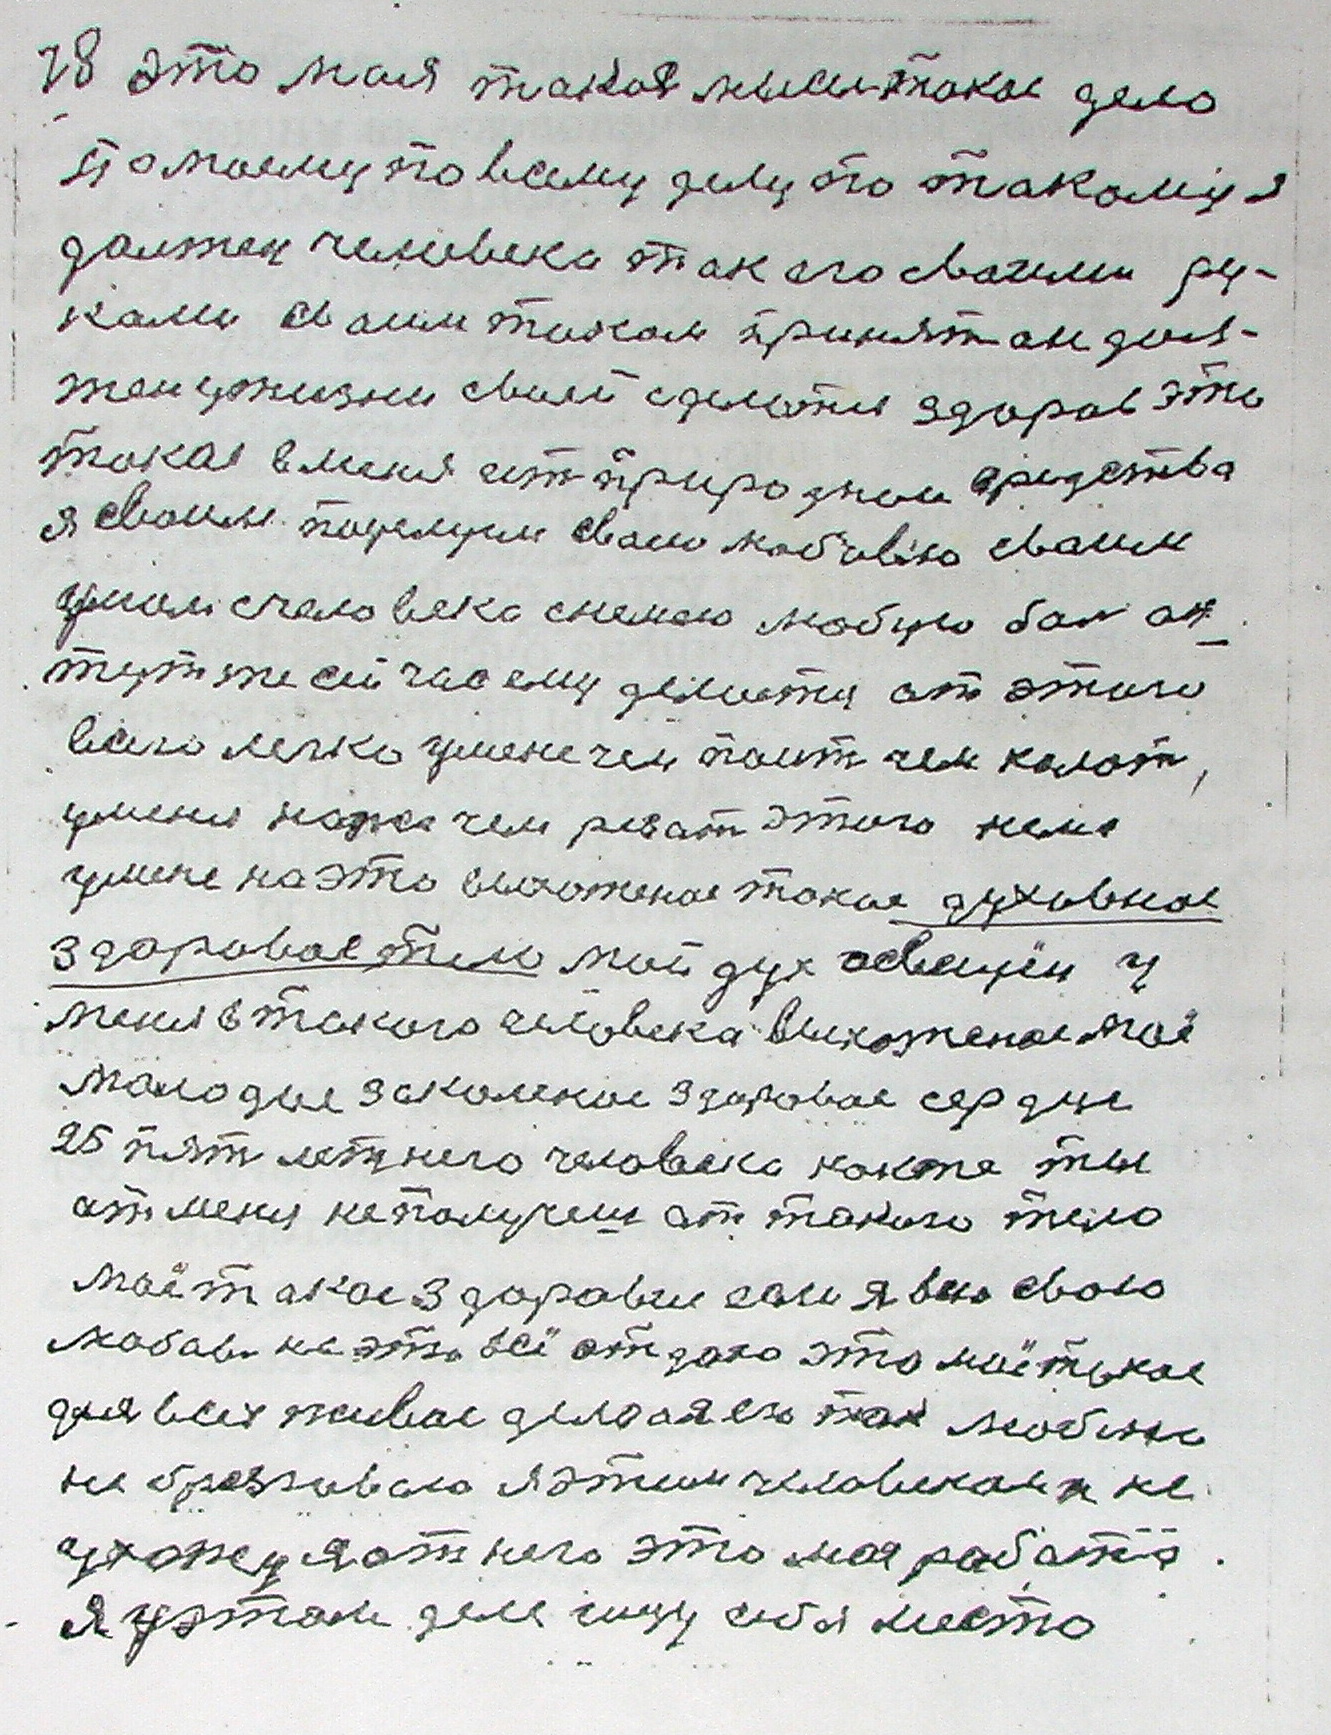 78 это мая такая мысл такое дело
по моему по всему делу по такому я
должен человека так его сваими ру-
ками сваим токам принят ане долж-
жен у жизни своей сделатся здоров это
такая в меня ест природнои средства
я сваим поцелуем сваею любовю сваим
умом с человека снемаю любую бол он
тут же сейчас ему делается от этого
всего легко у мене чем поит чем колот,
у меня ножа чем резат этого нема
у мене на это выхоженое такое духовное
здоровое тело мой дух освещён у
меня в такого человека выхоженое моё
молодые закаленое здоровое сердце
25 пят летнего человека как же ты
от меня не получеш от такого тела
моё такое здоровие если я всю свою
любов на это всё отдаю это моё такое
для всех живое дело я его так люблю
не брезговаю я этим человеком и не
ухожу я от него это моя работа.
я у этом деле ищу себя место